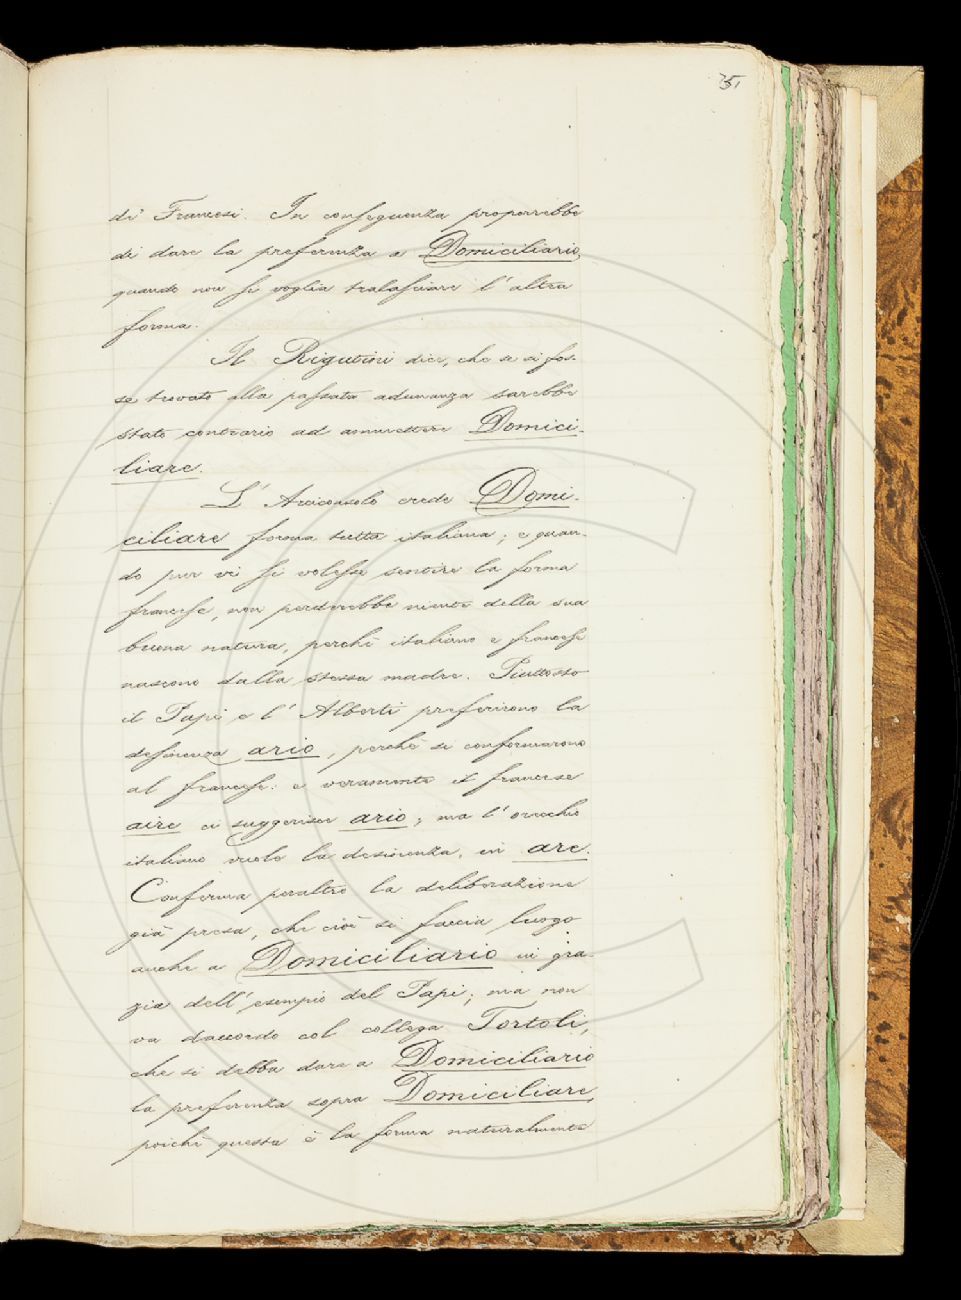 351
de' Francesi. In conseguenza proporrebbe
di dare la preferenza a Domiciliario,
quando non si voglia tralasciare l'altra
forma.
Il Rigutini dice, che se si fos-
se trovato alla passata adunanza sarebbe
stato contrario ad ammettere Domici-
liare.
L'Arciconsolo crede Domi-
ciliare forma tutta italiana; e quan-
do pur vi si volesse sentire la forma
francese, non perderebbe niente della sua
buona natura, perchè italiano e francese
nascono dalla stessa madre. Piuttosto
il Papi e l'Alberti preferirono la
desinenza ario, perchè si conformarono
al francese: e veramente il francese
aire ci suggerisce ario; ma l'orecchio
italiano vuole la desinenza, in are.
Conferma peraltro la deliberazione
già presa, che cioè si faccia luogo
anche a Domiciliario in gra-
zia dell'esempio del Papi; ma non
va daccordo col collega Tortoli,
che si debba dare a Domiciliario
la preferenza sopra Domiciliare,
poichè questa è la forma naturalmente